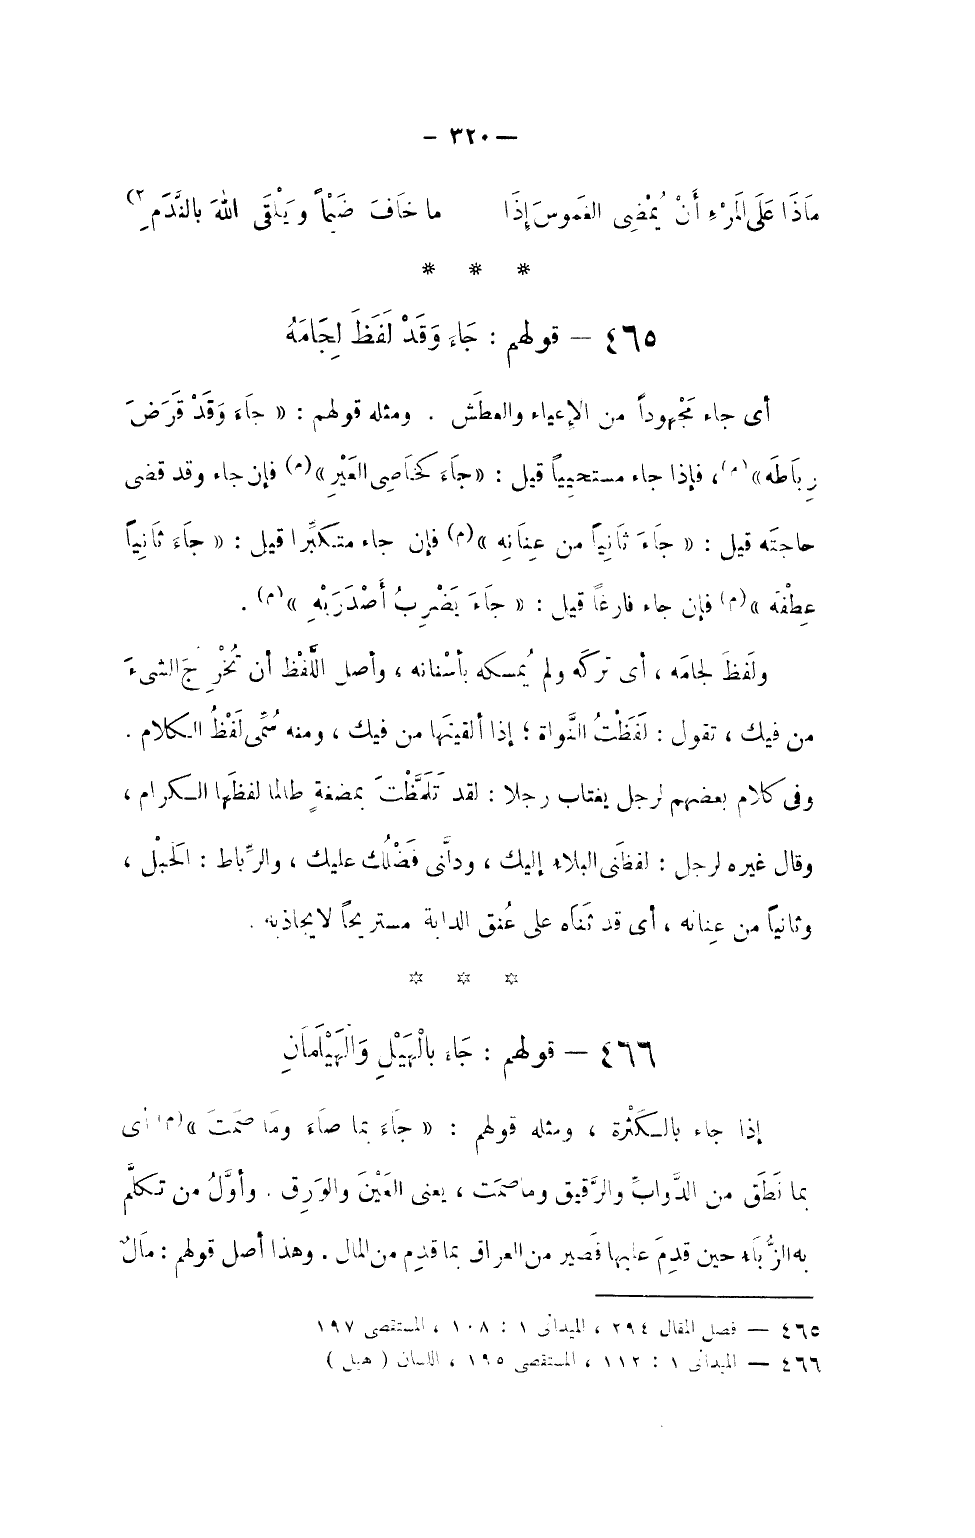 — ٣٢٠ —
مَاذَا عَلَى المَرْءِ أَنْ يُمْضِى الغَموسَ إِذَا ما خَافَ ضَيْماً وَيَلْقَى اللهَ بالنَّدَمِ (٢
* * *
٤٦٥ — قولهم : جَاءَ وَقَدْ لَفَظَ لِجَامَهُ
أى جاء مَجْهوداً من الإِعياء والعطَش . ومثله قولهم : « جاَءَ وَقَدْ قَرَضَ
رِبَاطَه » (م) ، فإذا جاء مستحيياً قيل : « جاَءَ كَخَاصِى العَيْرِ » (م) فإن جاء وقد قضى
حاجتَه قيل : « جاَءَ ثَانِياً من عِنَانِه » (م) فإن جاء متكبِّرا قيل : « جاَءَ ثانِياً
عِطْفَه » (م) فإن جاء فارغاً قيل : « جاَءَ يَضْرِبُ أَصْدَرَيْهِ » (م) .
ولَفَظَ لجامَه ، أى تركَه ولم يُمسكه بأسْنانه ، وأصل اللَّفْظ أن تُخْرِجَ الشىءَ
من فيك ، تقول : لَفَظْتُ النَّواة ؛ إذا ألقيتَها من فيك ، ومنه سُمِّى لَفْظُ الكلام .
وفى كلام بعضهم لرجل يغتاب رجلا : لقد تَلَمَّظْتَ بمضغةٍ طالما لفظَها الكرام ،
وقال غيره لرجل : لفظَنى البلاء إليك ، ودلَّنى فَضْلُك عليك ، والرِّباط : الحَبْل ،
وثانياً من عِنانه ، أى قد ثَناَه على عُنق الدابة مستريحاً لا يجاذبه .
* * *
٤٦٦ — قولهم : جَاءَ بالْهَيْلِ وَالْهَيْلَمَانِ
إذا جاء بالكَثْرة ، ومثله قولهم : « جاَءَ بما صاَءَ وَمَا صَمَتَ » (م) أى
بما نَطَق من الدَّوابِّ والرَّقيق وما صمَت ، يعنى العَيْنَ والوَرِق . وأوَّلُ من تكلَّم
به الزَّبَّاء حين قدِمَ عليها قَصِير من العراق بما قدِم من المال . وهذا أصل قولهم : مَالٌ
٤٦٥ — فصل المقال ٢٩٤ ، الميدانى ١ : ١٠٨ ، المستقصى ١٩٧
٤٦٦ — الميدانى ١ : ١١٢ ، المستقصى ١٩٥ ، اللسان ( هيل )